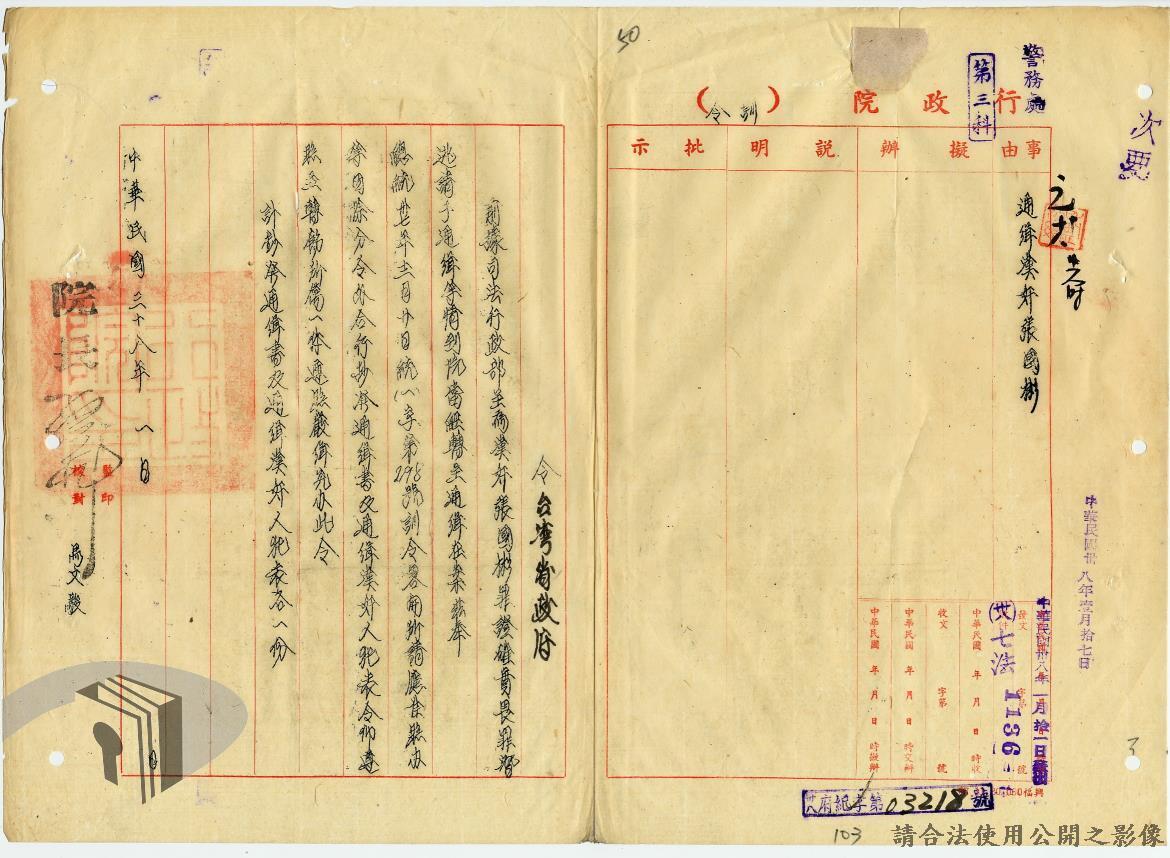 50
警務處
第三科
次要
行政院（訓令）
事由
擬辦
說明
批示
通緝漢奸張國彬
中華民國卅八年壹月拾七日
中華民國卅八年一月拾一日
發文
(卅)七法
1136
字第 號
中華民國 年 月 日 時收
收文 字第 號
中華民國 年 月 日 時交辦
中華民國 年 月 日 時擬辦
卅八府紀字第03218號
103
3
令台灣省政府
前據司法行政部呈為漢奸張國彬罪證確實畏罪潛
逃請予通緝等情到院當經轉呈通緝在案茲奉
總統卅七年十二月廿日統(一)字第298號訓令略開所請應准照办
等因除分令外合行抄發通緝書及通緝漢奸人犯表令仰遵
照並轉飭所屬一体遵照嚴緝究办此令
計抄發通緝書及通緝漢奸人犯表各一份
院長
中華民國三十八年一月 日
監印
校對
請合法使用公開之影像